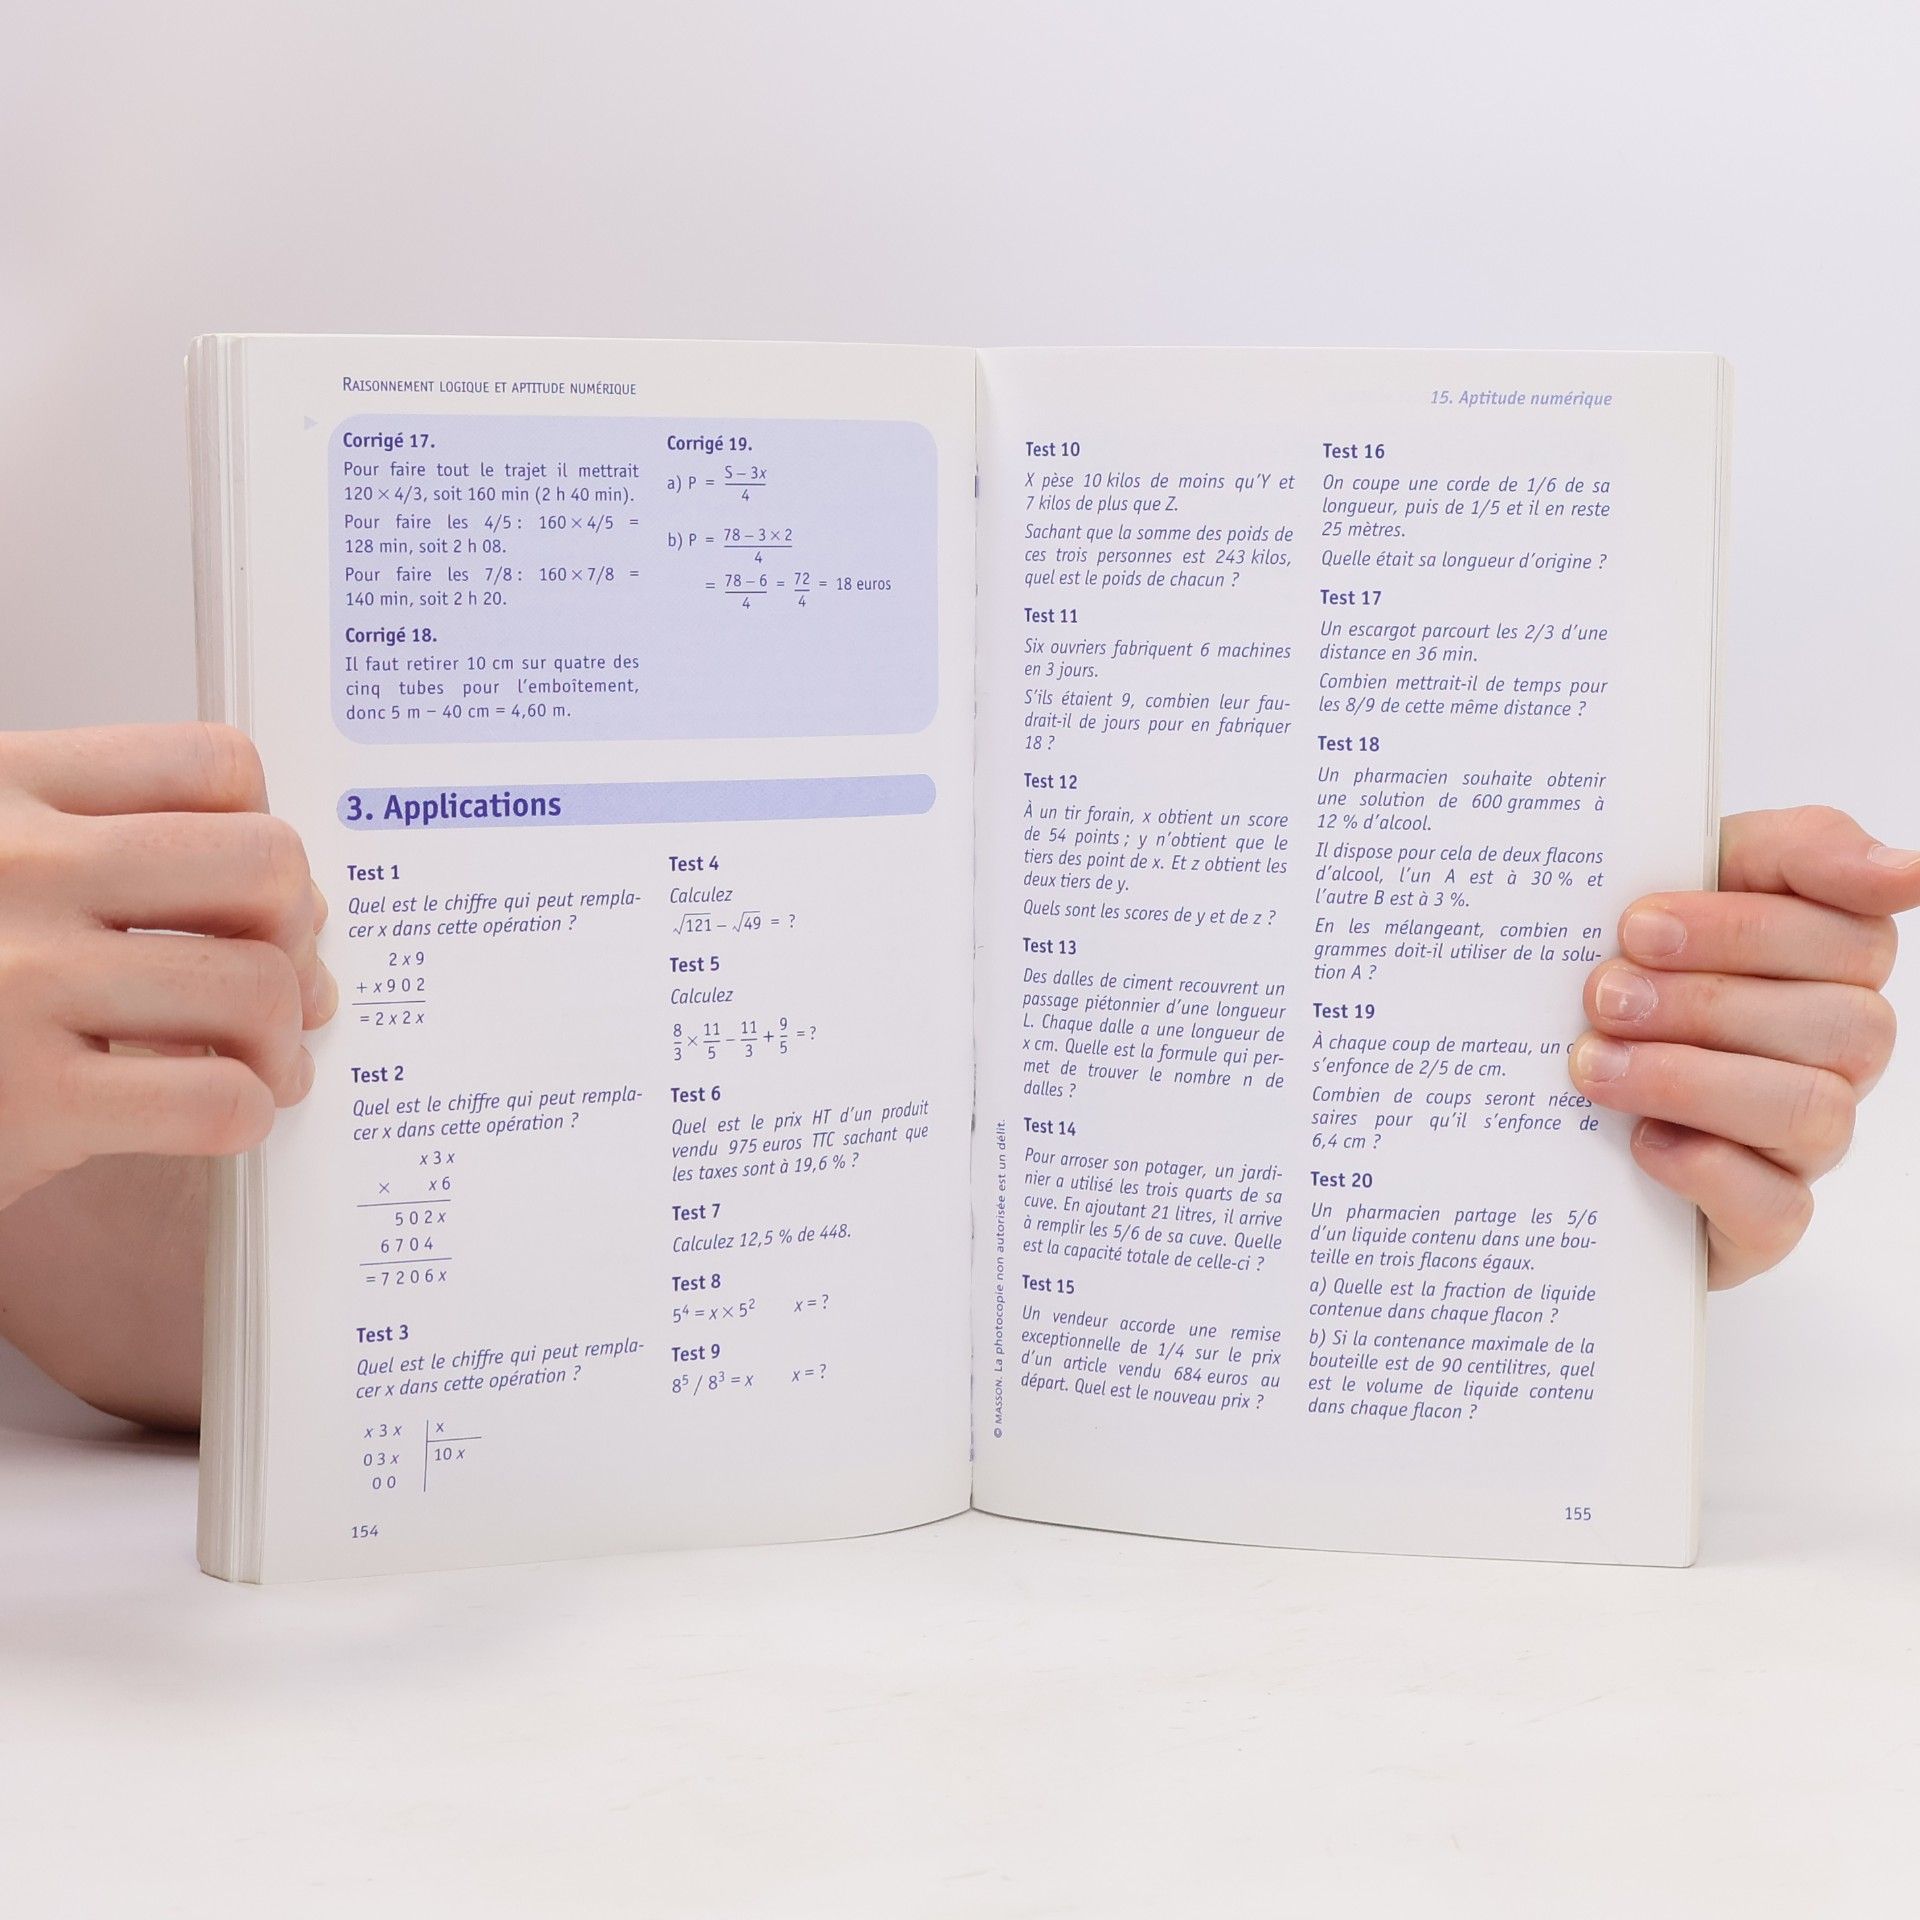 RAISONNEMENT LOGIQUE ET APTITUDE NUMÉRIQUE
Corrigé 17.
Pour faire tout le trajet il mettrait
120 × 4/3, soit 160 min (2 h 40 min).
Pour faire les 4/5 : 160 × 4/5 =
128 min, soit 2 h 08.
Pour faire les 7/8 : 160 × 7/8 =
140 min, soit 2 h 20.
Corrigé 18.
Il faut retirer 10 cm sur quatre des
cinq tubes pour l'emboîtement,
donc 5 m – 40 cm = 4,60 m.
Corrigé 19.
a) P = (S – 3x)/4
b) P = (78 – 3 × 2)/4
= (78 – 6)/4 = 72/4 = 18 euros
3. Applications
Test 1
Quel est le chiffre qui peut rempla-
cer x dans cette opération ?
2 x 9
+ x 9 0 2
= 2 x 2 x
Test 2
Quel est le chiffre qui peut rempla-
cer x dans cette opération ?
x 3 x
× x 6
5 0 2 x
6 7 0 4
= 7 2 0 6 x
Test 3
Quel est le chiffre qui peut rempla-
cer x dans cette opération ?
x 3 x | x
0 3 x | 10 x
0 0
154
Test 4
Calculez
√121 – √49 = ?
Test 5
Calculez
8/3 × 11/5 – 11/3 + 9/5 = ?
Test 6
Quel est le prix HT d'un produit
vendu 975 euros TTC sachant que
les taxes sont à 19,6 % ?
Test 7
Calculez 12,5 % de 448.
Test 8
5⁴ = x × 5² x = ?
Test 9
8⁵ / 8³ = x x = ?
15. Aptitude numérique
Test 10
X pèse 10 kilos de moins qu'Y et
7 kilos de plus que Z.
Sachant que la somme des poids de
ces trois personnes est 243 kilos,
quel est le poids de chacun ?
Test 11
Six ouvriers fabriquent 6 machines
en 3 jours.
S'ils étaient 9, combien leur fau-
drait-il de jours pour en fabriquer
18 ?
Test 12
À un tir forain, x obtient un score
de 54 points ; y n'obtient que le
tiers des point de x. Et z obtient les
deux tiers de y.
Quels sont les scores de y et de z ?
Test 13
Des dalles de ciment recouvrent un
passage piétonnier d'une longueur
L. Chaque dalle a une longueur de
x cm. Quelle est la formule qui per-
met de trouver le nombre n de
dalles ?
Test 14
Pour arroser son potager, un jardi-
nier a utilisé les trois quarts de sa
cuve. En ajoutant 21 litres, il arrive
à remplir les 5/6 de sa cuve. Quelle
est la capacité totale de celle-ci ?
Test 15
Un vendeur accorde une remise
exceptionnelle de 1/4 sur le prix
d'un article vendu 684 euros au
départ. Quel est le nouveau prix ?
© MASSON. La photocopie non autorisée est un délit.
Test 16
On coupe une corde de 1/6 de sa
longueur, puis de 1/5 et il en reste
25 mètres.
Quelle était sa longueur d'origine ?
Test 17
Un escargot parcourt les 2/3 d'une
distance en 36 min.
Combien mettrait-il de temps pour
les 8/9 de cette même distance ?
Test 18
Un pharmacien souhaite obtenir
une solution de 600 grammes à
12 % d'alcool.
Il dispose pour cela de deux flacons
d'alcool, l'un A est à 30 % et
l'autre B est à 3 %.
En les mélangeant, combien en
grammes doit-il utiliser de la solu-
tion A ?
Test 19
À chaque coup de marteau, un
s'enfonce de 2/5 de cm.
Combien de coups seront néces-
saires pour qu'il s'enfonce de
6,4 cm ?
Test 20
Un pharmacien partage les 5/6
d'un liquide contenu dans une bou-
teille en trois flacons égaux.
a) Quelle est la fraction de liquide
contenue dans chaque flacon ?
b) Si la contenance maximale de la
bouteille est de 90 centilitres, quel
est le volume de liquide contenu
dans chaque flacon ?
155